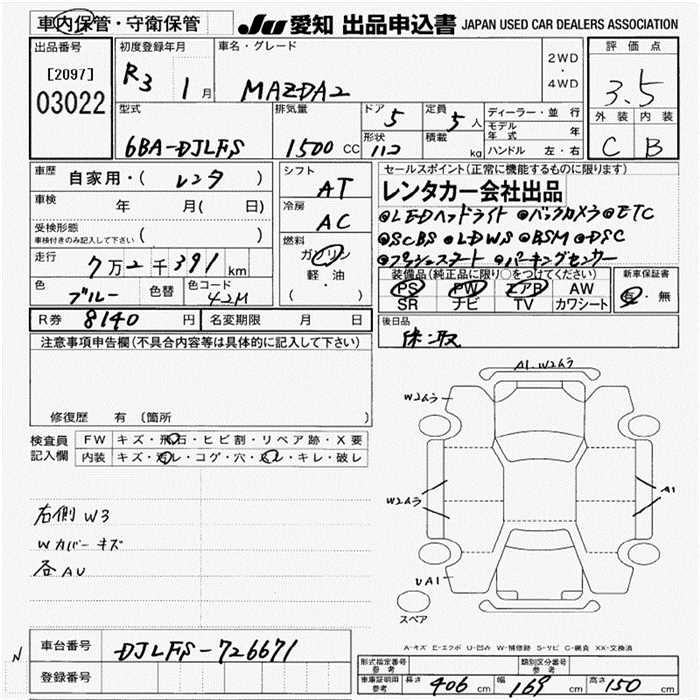 車内保管・守衛保管 JU 愛知 出品申込書 JAPAN USED CAR DEALERS ASSOCIATION
出品番号 [2097] 03022
初度登録年月 R3 1月
車名・グレード MAZDA2
2WD・4WD
評価点 3.5
外装 C 内装 B
型式 6BA-DJLFS
排気量 1500 CC
ドア 5 定員 5人
形状 112 積載 kg
ディーラー・並行
モデル年式 年
ハンドル 左・右
車歴 自家用・(レンタ)
車検 年 月( 日)
受検形態 車検付きのみ記入して下さい ( )
走行 7万2千391km
色 ブルー 色替 色コード 42M
シフト AT
冷房 AC
燃料 ガソリン 軽油 ( )
セールスポイント(正常に機能するものに限ります)
レンタカー会社出品
◎LEDヘッドライト ◎バックカメラ ◎ETC
◎SCBS ◎LDWS ◎BSM ◎DSC
◎プッシュスタート ◎パーキングセンサー
装備品(純正品に限り○をつけてください)
PS PW エアB AW
SR ナビ TV カワシート
新車保証書 有・無
R券 8140円 名変期限 月 日
後日品 保、取
注意事項申告欄(不具合内容等は具体的に記入して下さい)
修復歴 有(箇所
検査員記入欄
FW キズ・飛石・ヒビ割・リペア跡・X要
内装 キズ・汚レ・コゲ・穴・スレ・キレ・破レ
右側 W3
Wカバー キズ
各 AU
A1.W2ムラ
W2ムラ
W2ムラ
A1
UA1
スペア
A-キズ E-エクボ U-凹み W-補修跡 S-サビ C-腐食 XX-交換済
N
車台番号 DJLFS-726671
登録番号
形式指定番号 参考 類別区分番号 参考
車庫証明用 参考 長さ 406 cm 幅 169 cm 高さ 150 cm